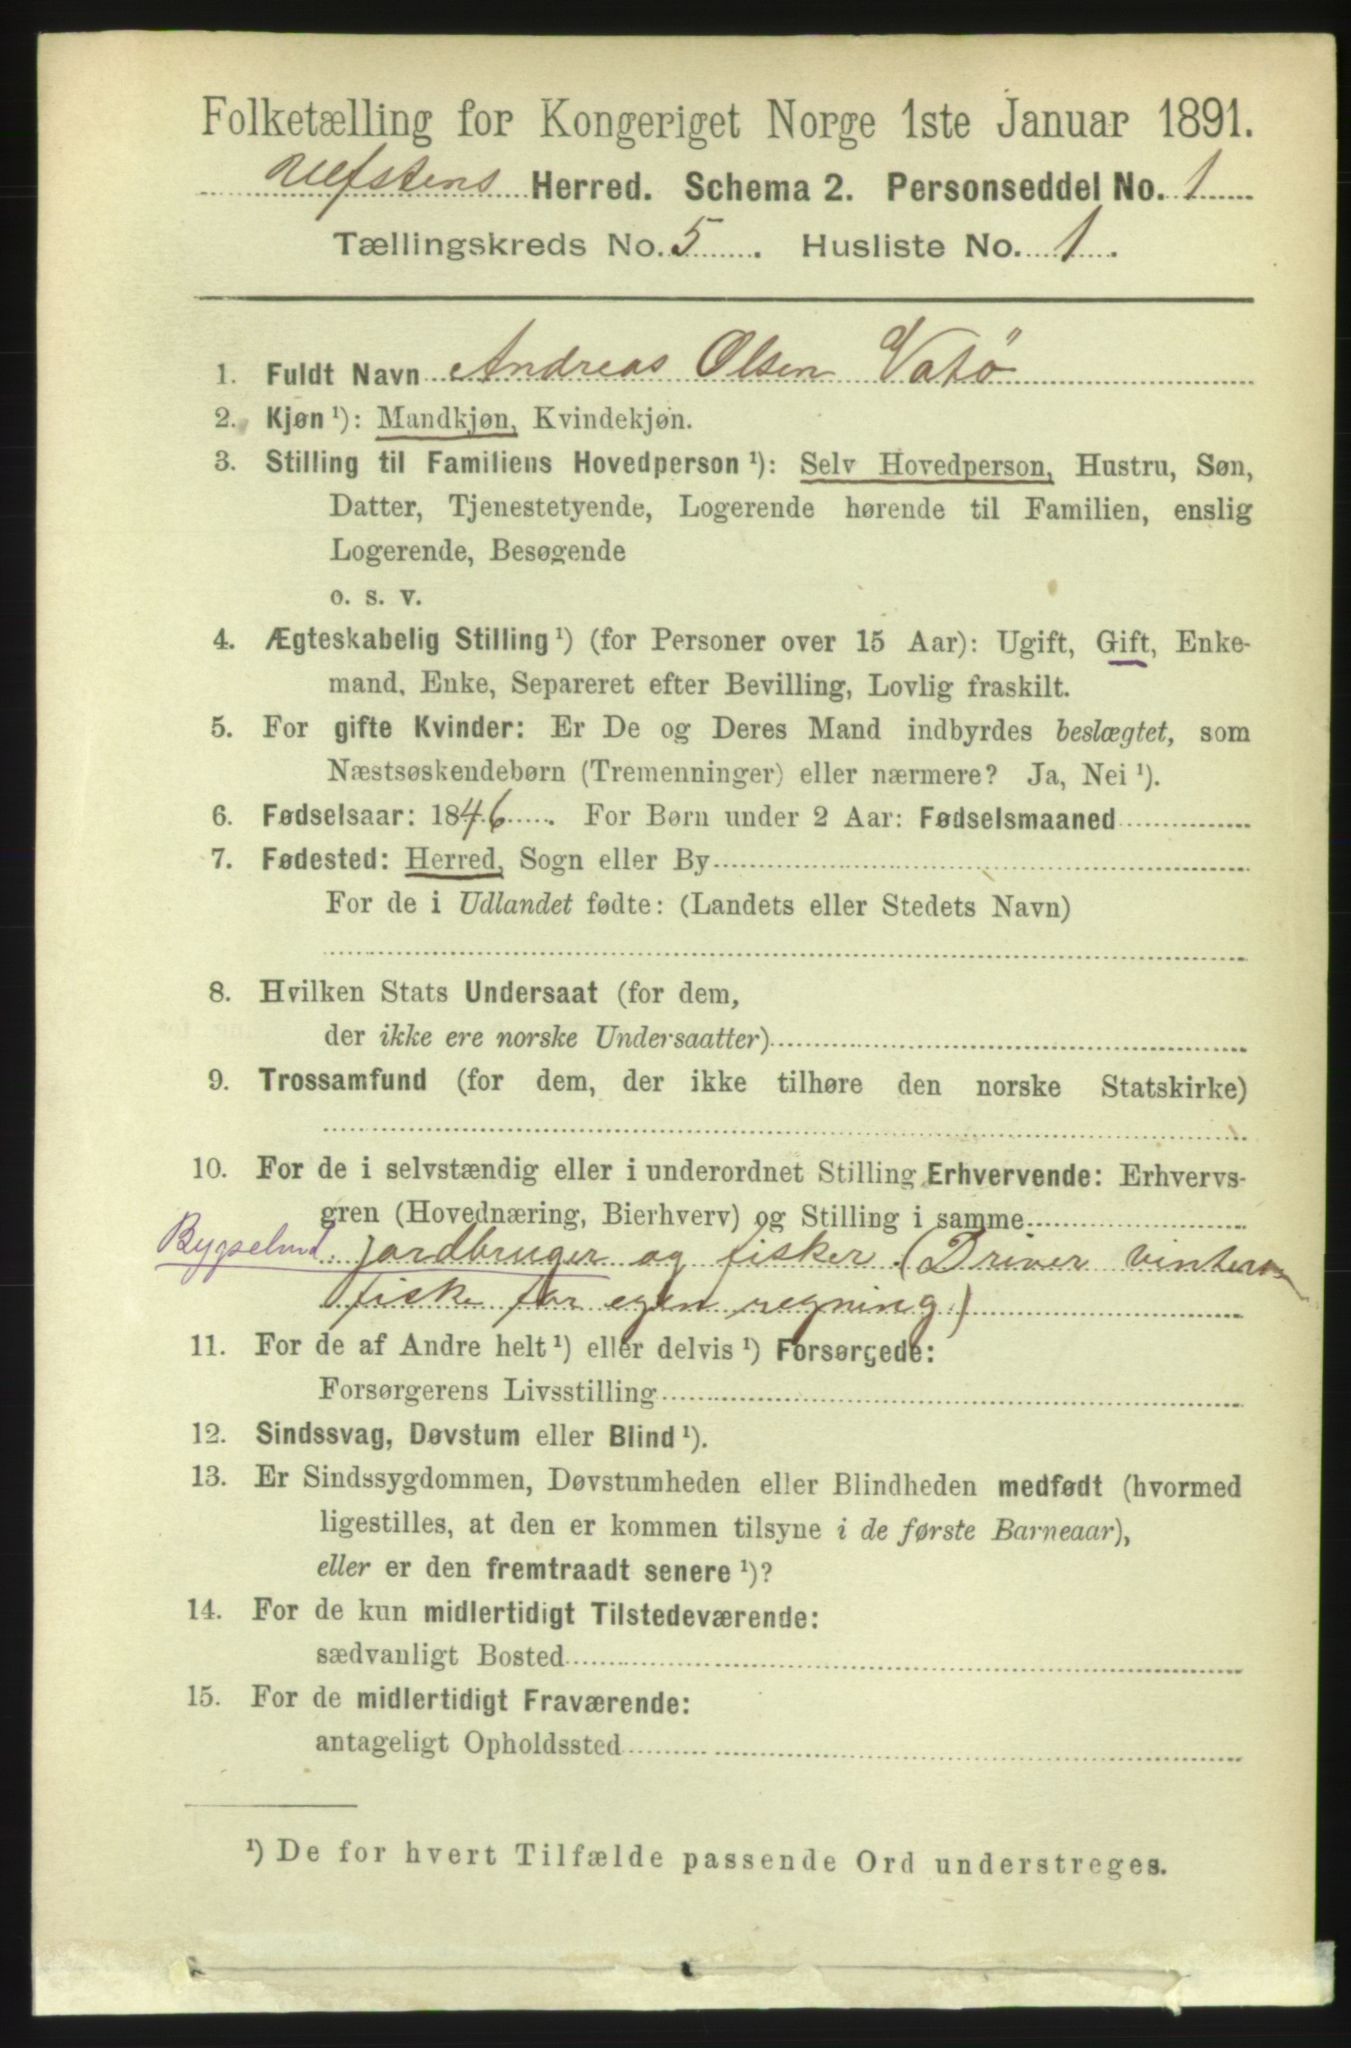 Folketælling for Kongeriget Norge 1ste Januar 1891.
Ulfstens Herred. Schema 2. Personseddel No. 1
Tællingskreds No. 5. Husliste No. 1.
1. Fuldt Navn Andreas Olsen Vatø
2. Kjøn ¹): Mandkjøn, Kvindekjøn.
3. Stilling til Familiens Hovedperson ¹): Selv Hovedperson, Hustru, Søn,
Datter, Tjenestetyende, Logerende hørende til Familien, enslig
Logerende, Besøgende
o. s. v.
4. Ægteskabelig Stilling ¹) (for Personer over 15 Aar): Ugift, Gift, Enke-
mand, Enke, Separeret efter Bevilling, Lovlig fraskilt.
5. For gifte Kvinder: Er De og Deres Mand indbyrdes beslægtet, som
Næstsøskendebørn (Tremenninger) eller nærmere? Ja, Nei ¹).
6. Fødselsaar: 1846. For Børn under 2 Aar: Fødselsmaaned
7. Fødested: Herred, Sogn eller By
For de i Udlandet fødte: (Landets eller Stedets Navn)
8. Hvilken Stats Undersaat (for dem,
der ikke ere norske Undersaatter)
9. Trossamfund (for dem, der ikke tilhøre den norske Statskirke)
10. For de i selvstændig eller i underordnet Stilling Erhvervende: Erhvervs-
gren (Hovednæring, Bierhverv) og Stilling i samme
Bygselmd. jordbruger og fisker (Driver vinter
fiske for egen regning)
11. For de af Andre helt ¹) eller delvis ¹) Forsørgede:
Forsørgerens Livsstilling
12. Sindssvag, Døvstum eller Blind ¹).
13. Er Sindssygdommen, Døvstumheden eller Blindheden medfødt (hvormed
ligestilles, at den er kommen tilsyne i de første Barneaar),
eller er den fremtraadt senere ¹)?
14. For de kun midlertidigt Tilstedeværende:
sædvanligt Bosted
15. For de midlertidigt Fraværende:
antageligt Opholdssted
¹) De for hvert Tilfælde passende Ord understreges.